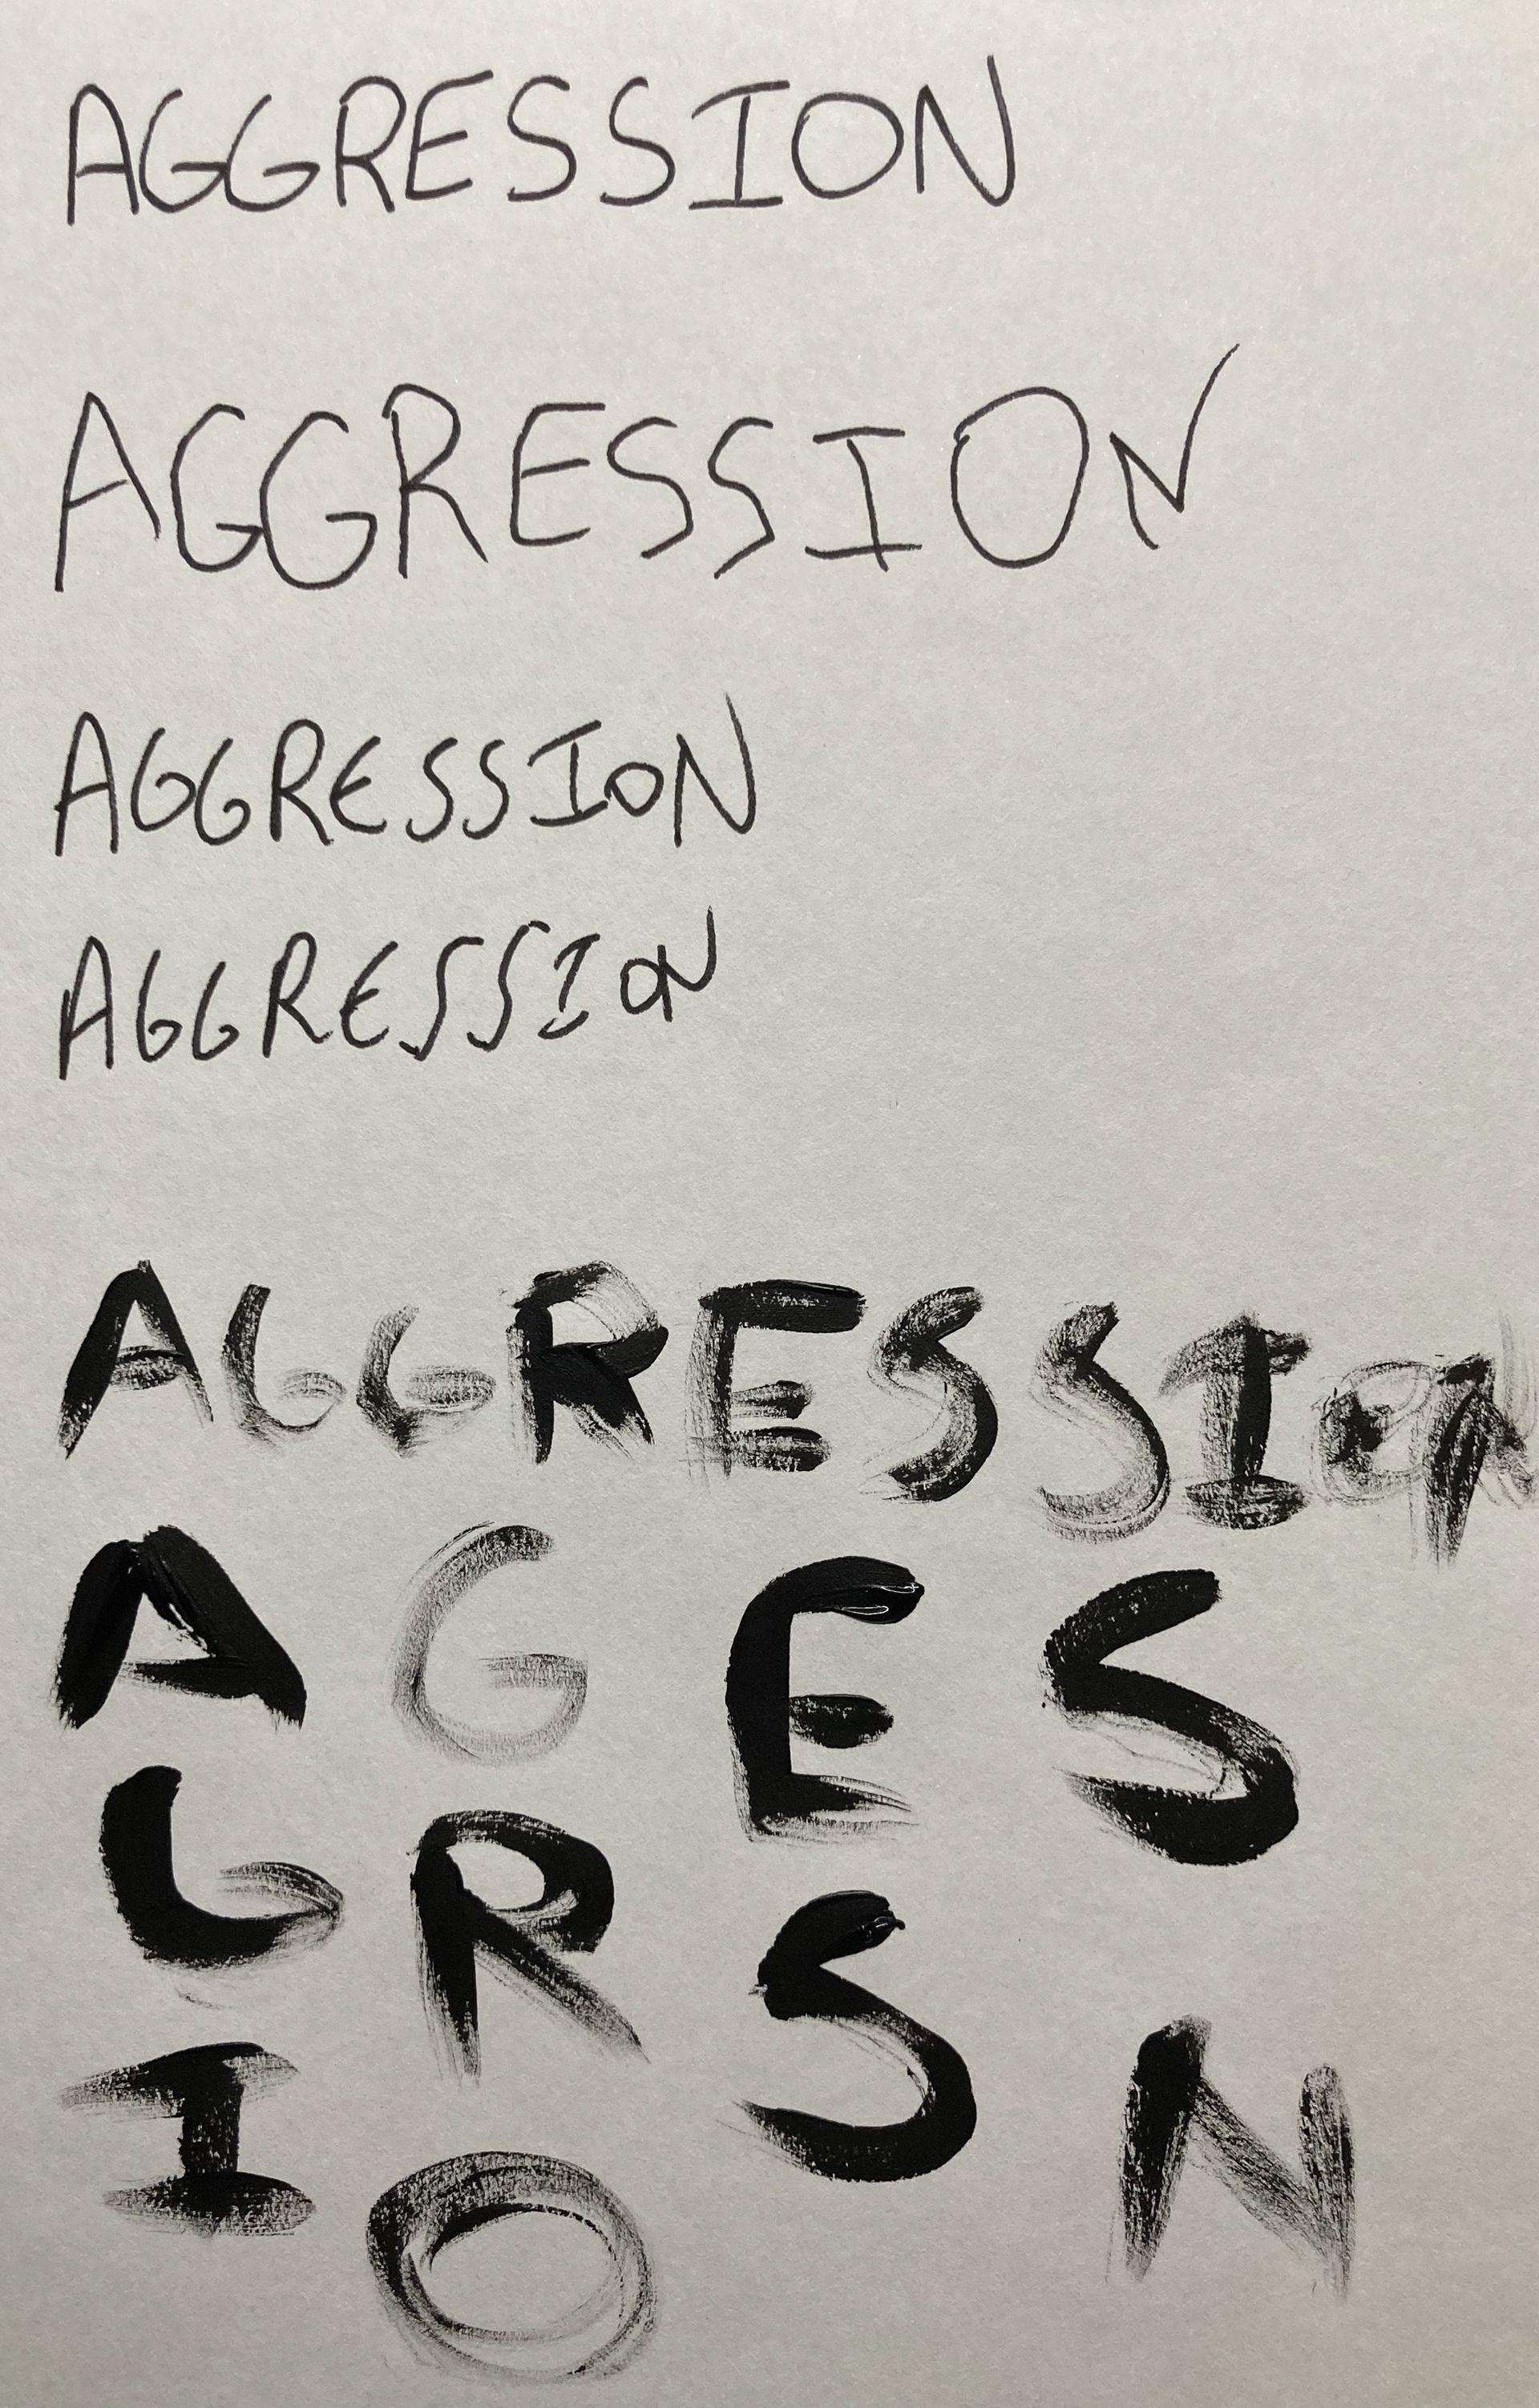 AGGRESSION
AGGRESSION
AGGRESSION
AGGRESSION
AGGRESSION
A G E S
G R S
I O N